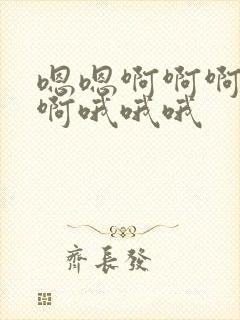 嗯嗯啊啊啊
啊哦哦哦
齊長發